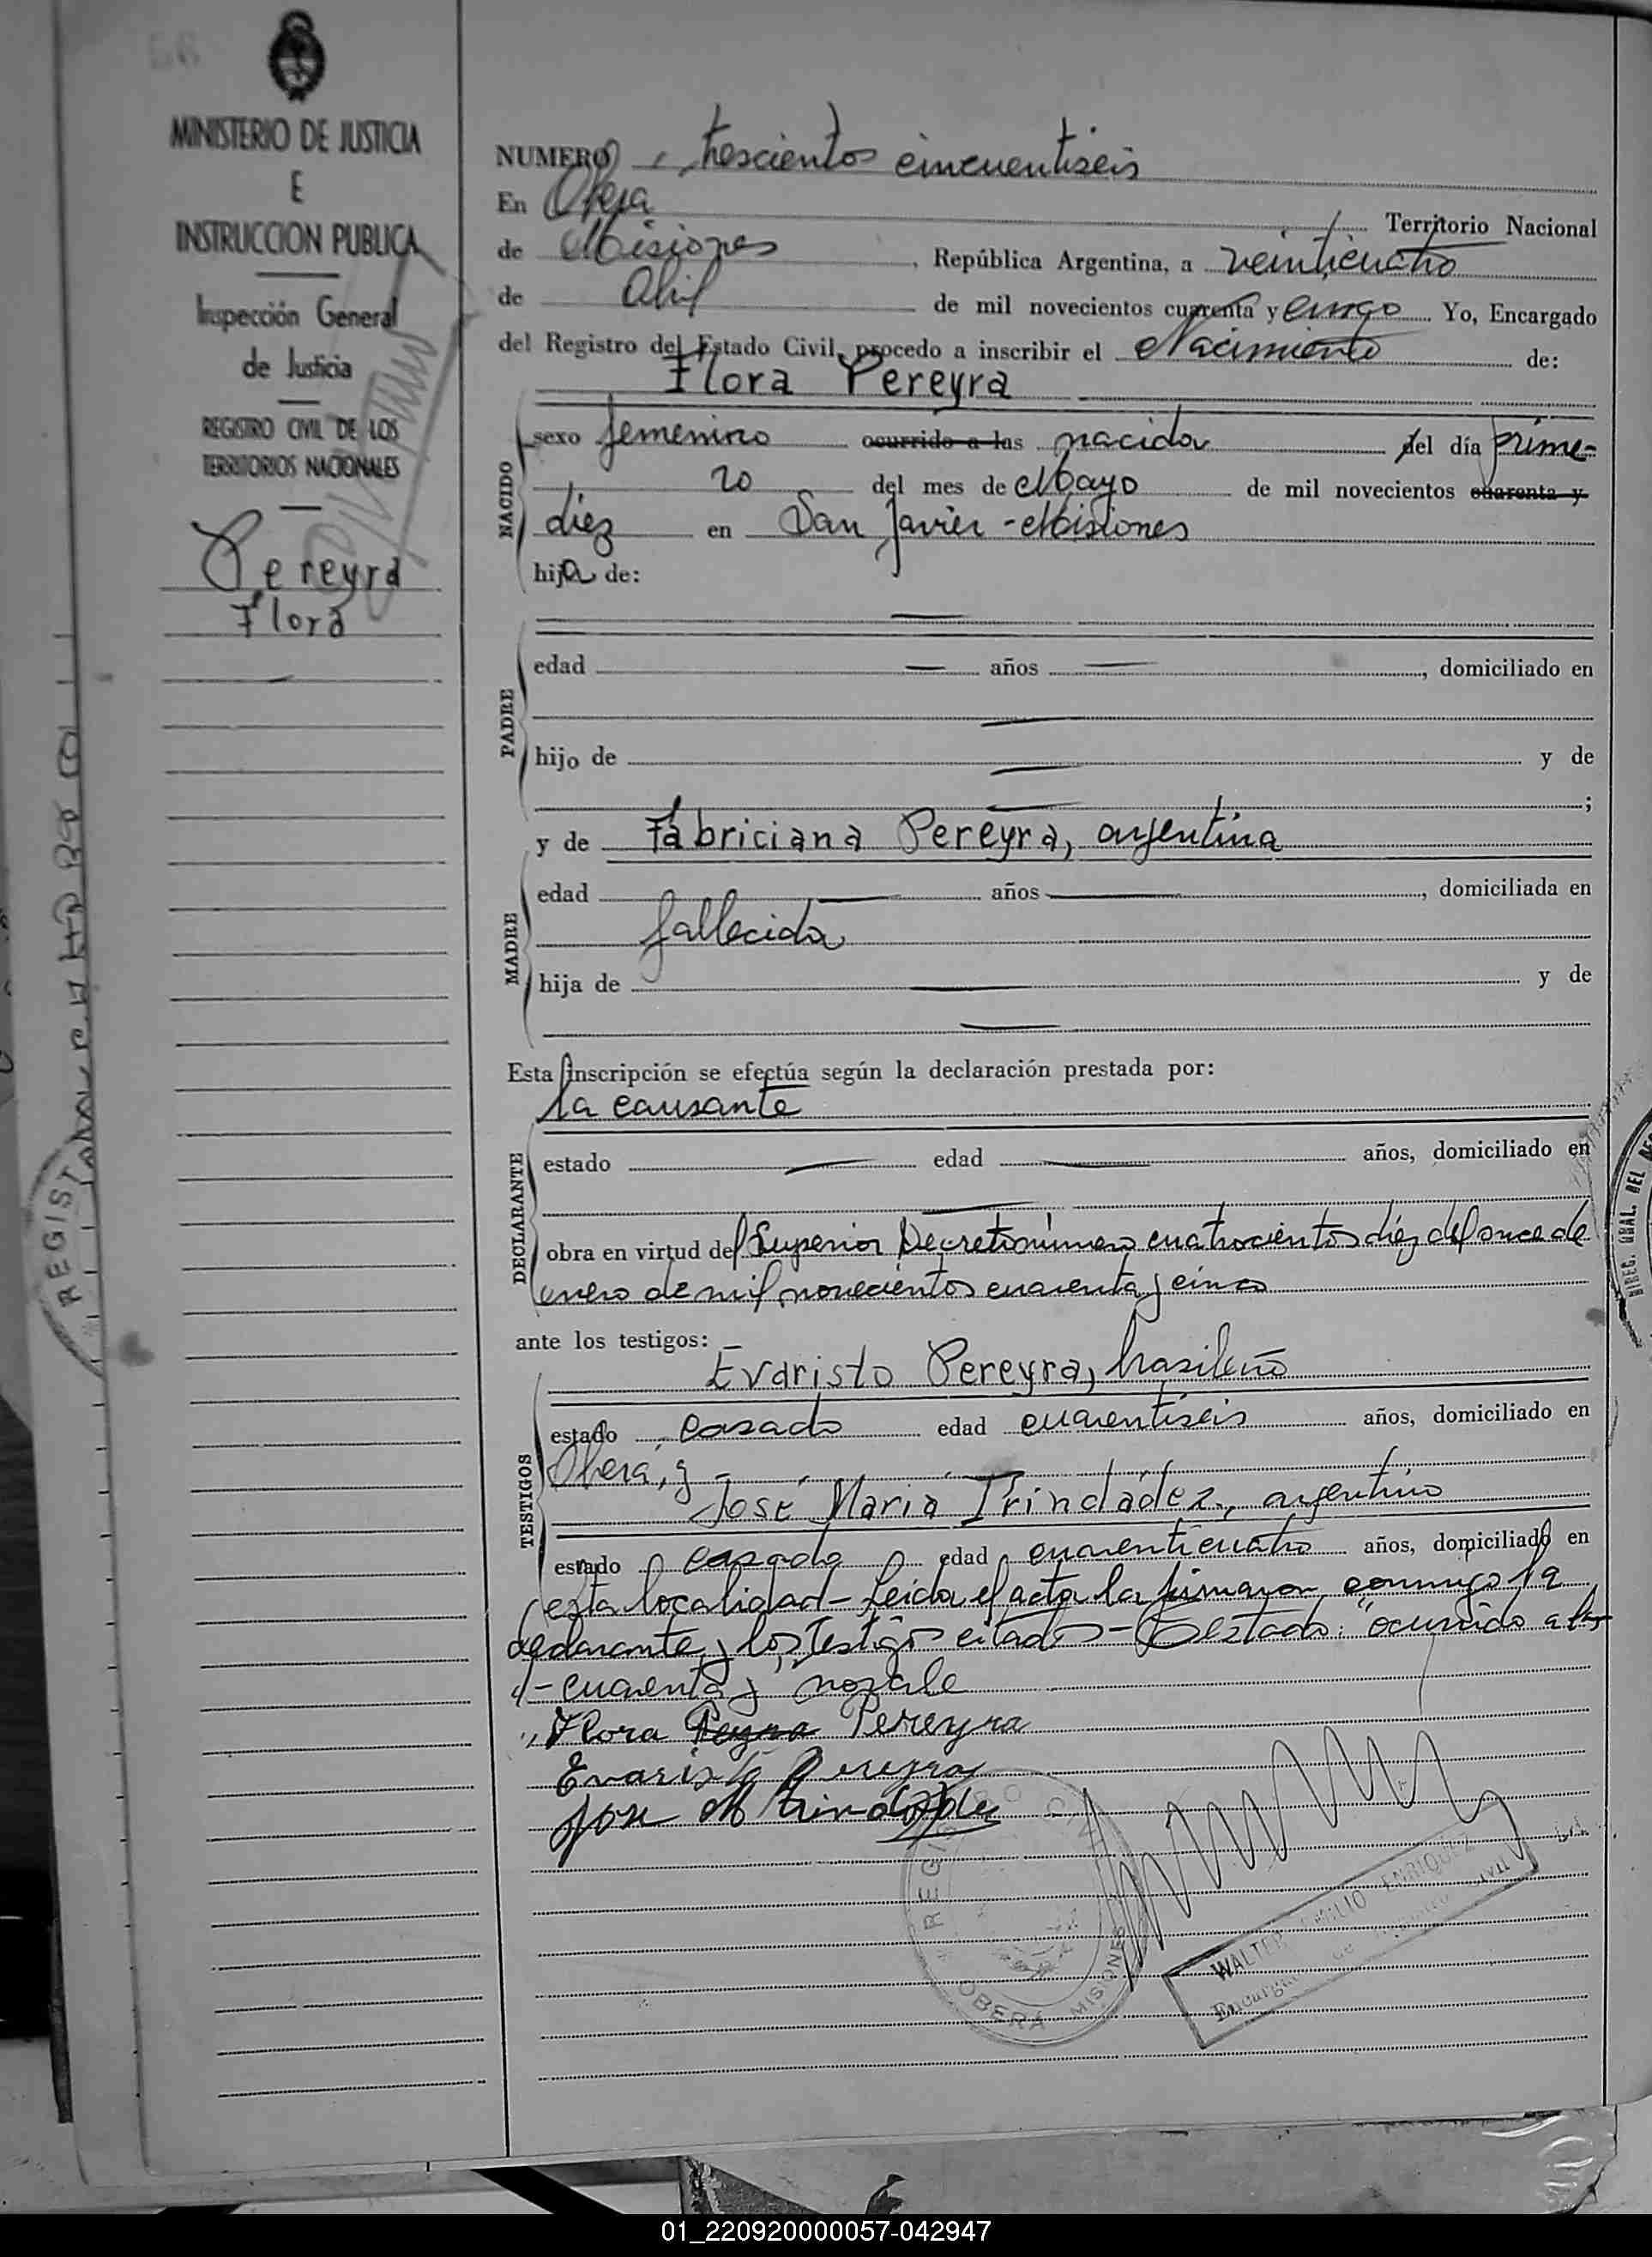 MINISTERIO DE JUSTICIA
E
INSTRUCCION PUBLICA
Inspección General
de Justicia
REGISTRO CIVIL DE LOS
TERRITORIOS NACIONALES
Pereyra
Flora
NUMERO trescientos cincuentiseis
En Oberá Territorio Nacional
de Misiones, República Argentina, a veinticuatro
de Abril de mil novecientos cuarenta y cinco Yo, Encargado
del Registro del Estado Civil, procedo a inscribir el Nacimiento de:
Flora Pereyra
NACIDO
sexo femenino ocurrido a las nacida del día prime-
ro del mes de Mayo de mil novecientos cuarenta y
diez en San Javier - Misiones
hija de:
PADRE
edad años , domiciliado en
hijo de y de
;
y de Fabriciana Pereyra, argentina
MADRE
edad años , domiciliada en
fallecida
hija de y de
Esta inscripción se efectúa según la declaración prestada por:
la causante
DECLARANTE
estado edad años, domiciliado en
obra en virtud del Superior Decreto número cuatrocientos diez del once de
enero de mil novecientos cuarenta y cinco
ante los testigos:
Evaristo Pereyra, brasileño
TESTIGOS
estado casado edad cuarentiseis años, domiciliado en
Oberá, y
José María Trindádez, argentino
estado casado edad cuarenticuatro años, domiciliado en
esta localidad - Leída el acta la firmaron conmigo la
declarante y los testigos citados - Testado: "ocurrido a las
- cuarenta y" no vale
Flora Pereyra
Evaristo Pereyra
Jose M Trindade
REGISTRO CIVIL
OBERÁ MISIONES
WALTER EMILIO ENRIQUEZ
Encargado de Registro Civil
REGIST
DIREC. GRAL. DEL
01_220920000057-042947